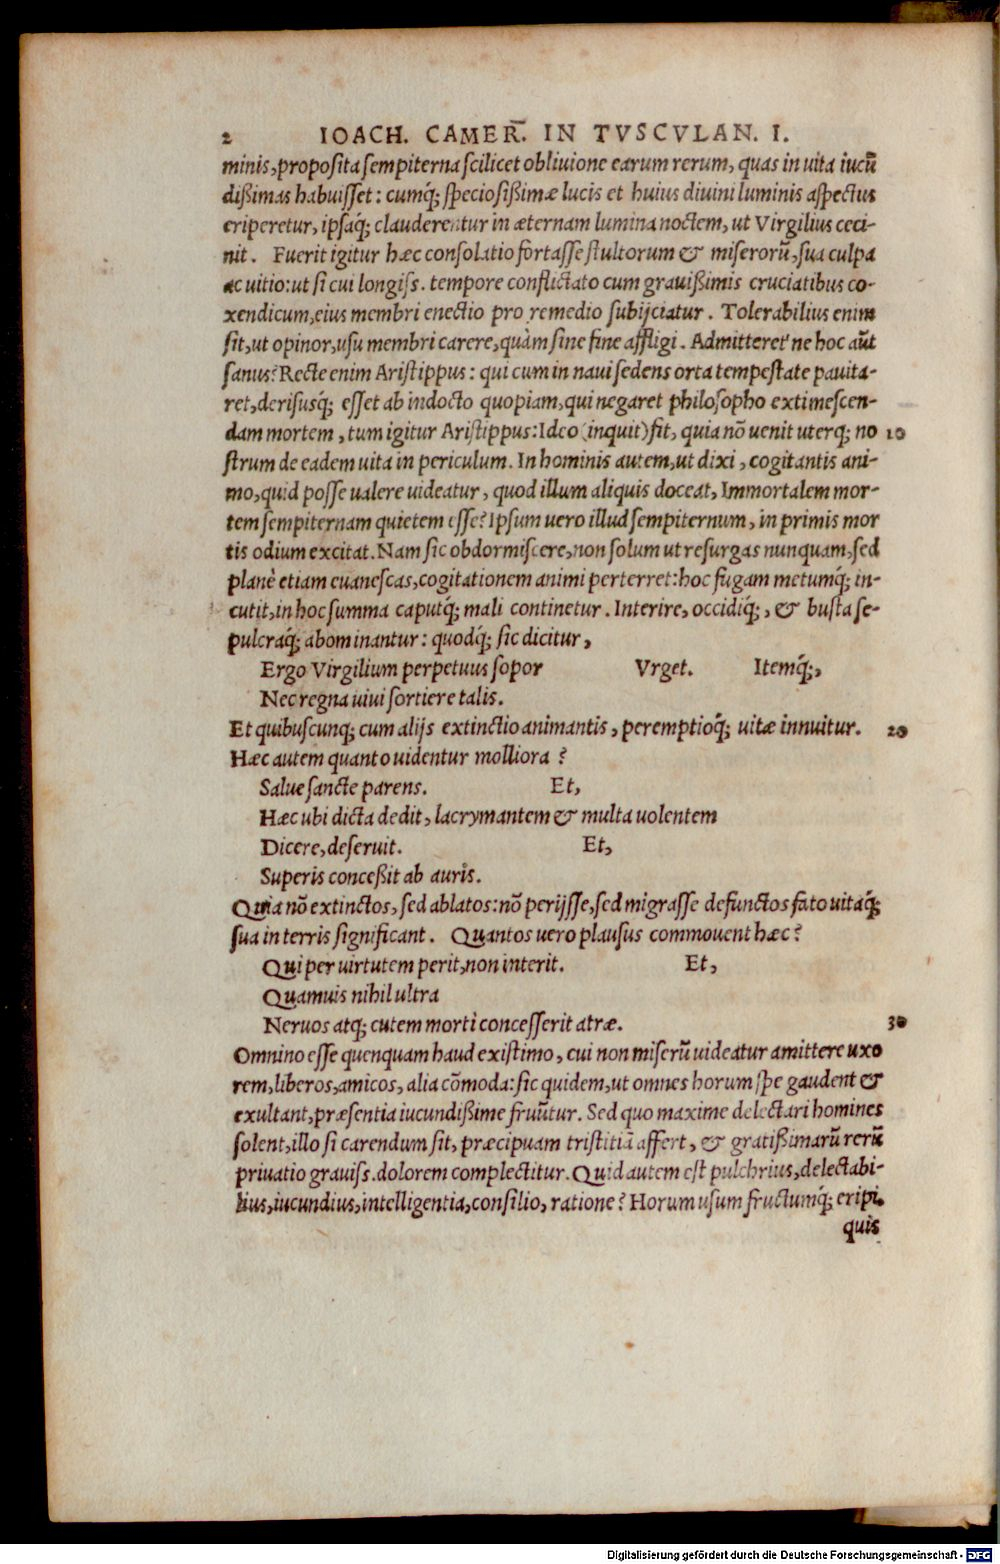 2 IOACH. CAMER̅. IN TVSCVLAN. I.
minis, proposita sempiterna scilicet obliuione earum rerum, quas in uita iucũ
dißimas habuisset: cumq́; speciosißimæ lucis et huius diuini luminis aspectus
eriperetur, ipsaq́; clauderentur in æternam lumina noctem, ut Virgilius ceci-
nit. Fuerit igitur hæc consolatio fortasse stultorum & miserorũ, sua culpa
ac uitio: ut si cui longiss. tempore conflictato cum grauißimis cruciatibus co-
xendicum, eius membri enectio pro remedio subijciatur. Tolerabilius enim
sit, ut opinor, usu membri carere, quàm sine fine affligi. Admitteret' ne hoc aũt
sanus? Recte enim Aristippus: qui cum in naui sedens orta tempestate pauita-
ret, derisusq́; esset ab indocto quopiam, qui negaret philosopho extimescen-
dam mortem, tum igitur Aristippus: Ideo (inquit) fit, quia nõ uenit uterq; no 10
strum de eadem uita in periculum. In hominis autem, ut dixi, cogitantis ani-
mo, quid posse ualere uideatur, quod illum aliquis doceat, Immortalem mor-
tem sempiternam quietem esse? Ipsum uero illud sempiternum, in primis mor
tis odium excitat. Nam sic obdormiscere, non solum ut resurgas nunquam, sed
planè etiam euanescas, cogitationem animi perterret: hoc fugam metumq́; in-
cutit, in hoc summa caputq́; mali continetur. Interire, occidiq́;, & busta se-
pulcraq́; abominantur: quodq́; sic dicitur,
Ergo Virgilium perpetuus sopor Vrget. Itemq́;,
Nec regna uiui sortiere talis.
Et quibuscunq; cum alijs extinctio animantis, peremptioq́; uitæ innuitur. 20
Hæc autem quanto uidentur molliora?
Salue sancte parens. Et,
Hæc ubi dicta dedit, lacrymantem & multa uolentem
Dicere, deseruit. Et,
Superis conceßit ab auris.
Quia nõ extinctos, sed ablatos: nõ perijsse, sed migrasse defunctos fato uitaq́;
sua in terris significant. Quantos uero plausus commouent hæc?
Qui per uirtutem perit, non interit. Et,
Quamuis nihil ultra
Neruos atq; cutem morti concesserit atræ. 30
Omnino esse quenquam haud existimo, cui non miserũ uideatur amittere uxo
rem, liberos, amicos, alia cõmoda: sic quidem, ut omnes horum spe gaudent &
exultant, præsentia iucundißime fruũtur. Sed quo maxime delectari homines
solent, illo si carendum sit, præcipuam tristitiã affert, & gratißimarũ rerũ
priuatio grauiss. dolorem complectitur. Quid autem est pulchrius, delectabi-
lius, iucundius, intelligentia, consilio, ratione? Horum usum fructumq́; eripi,
quis
Digitalisierung gefördert durch die Deutsche Forschungsgemeinschaft - DFG